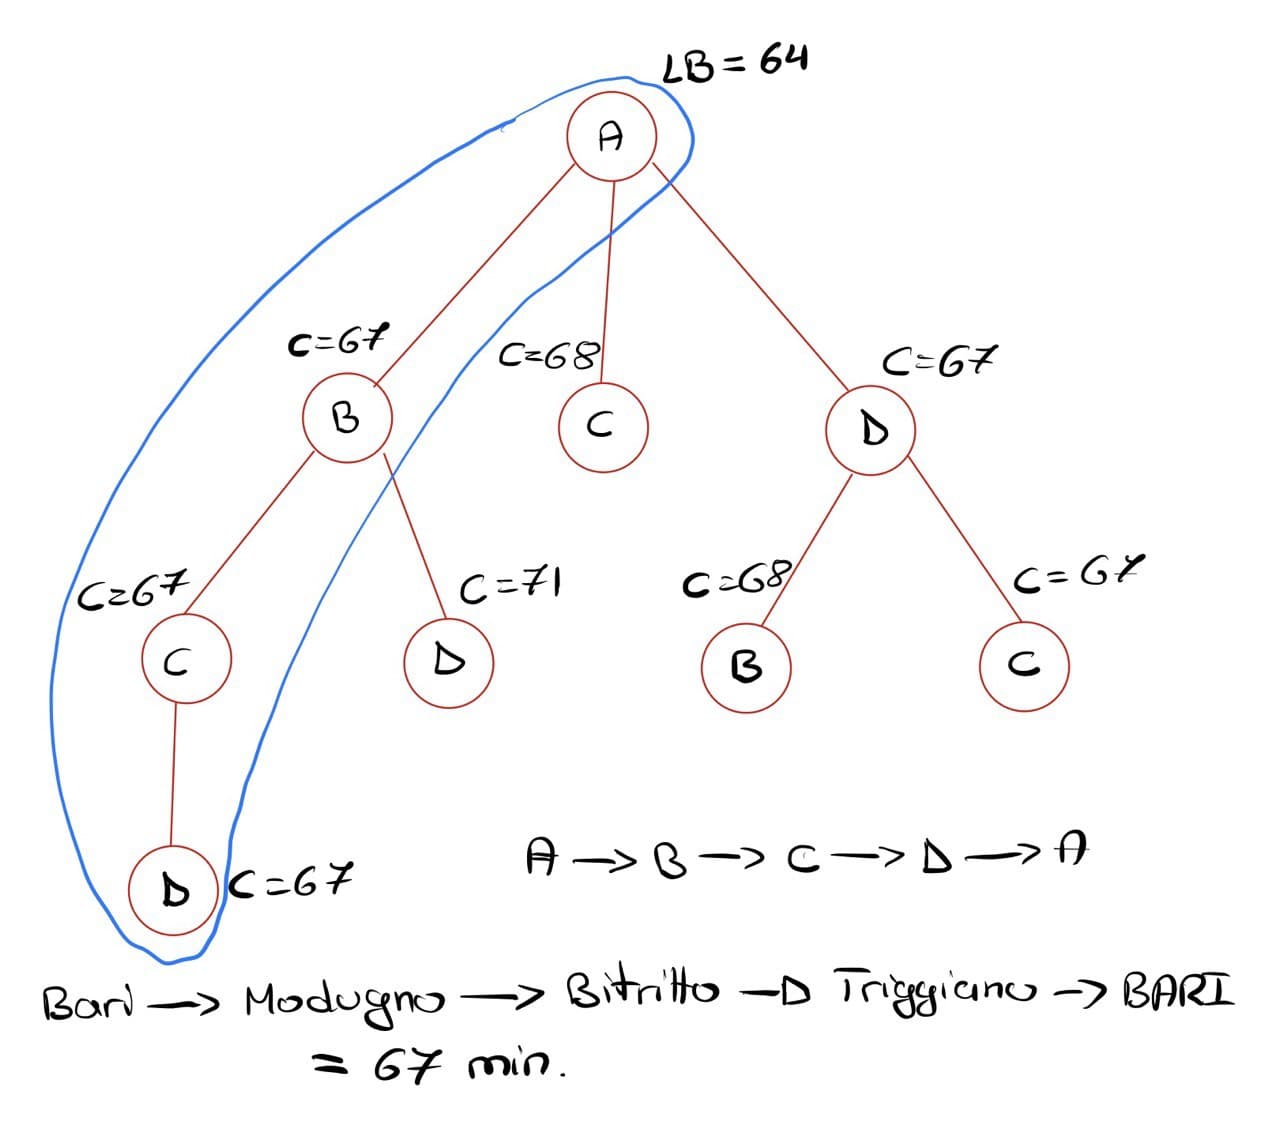 LB = 64
A
C=67
C=68
C=67
B
C
D
C=67
C=71
C=68
C=67
C
D
B
C
D
C=67
A → B → C → D → A
Bari → Modugno → Bitritto → Triggiano → BARI
= 67 min.